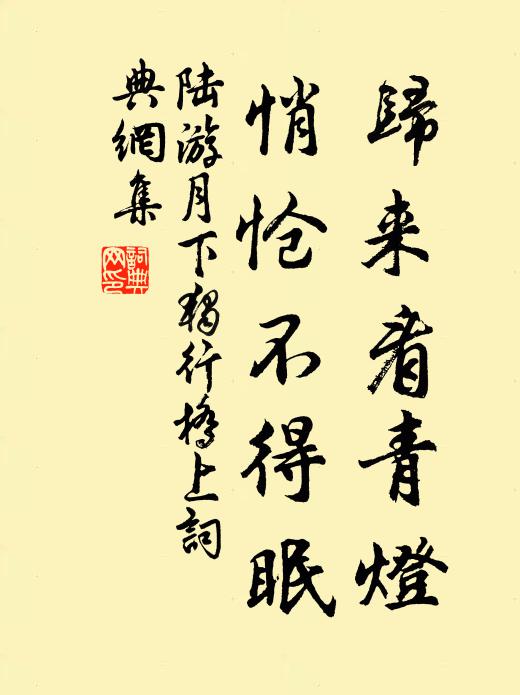 歸来看青燈
悄怆不得眠
陆游月下獨行橋上詞
典網集
詞典
网印